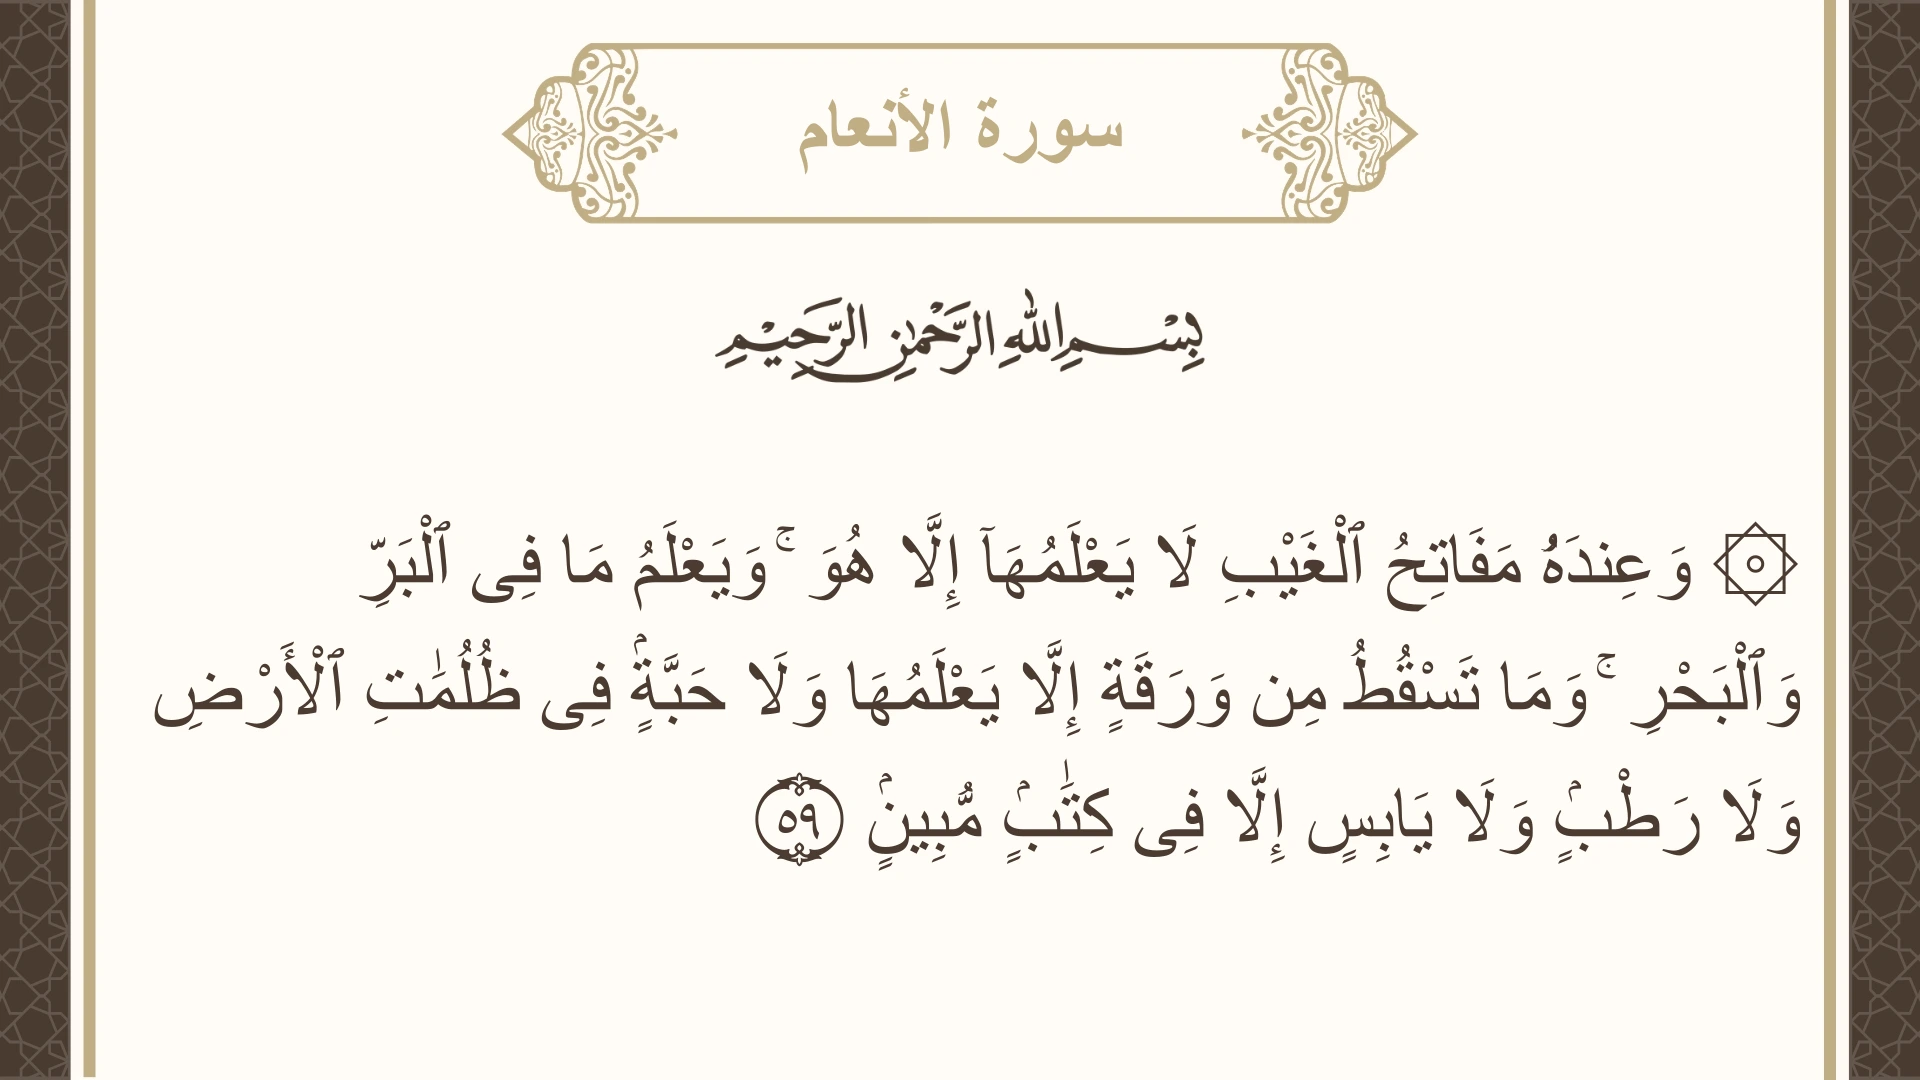 سورة الأنعام
بِسْمِ اللهِ الرَّحْمٰنِ الرَّحِيْمِ
۞ وَعِندَهُۥ مَفَاتِحُ ٱلْغَيْبِ لَا يَعْلَمُهَآ إِلَّا هُوَ ۚ وَيَعْلَمُ مَا فِى ٱلْبَرِّ
وَٱلْبَحْرِ ۚ وَمَا تَسْقُطُ مِن وَرَقَةٍ إِلَّا يَعْلَمُهَا وَلَا حَبَّةٍۢ فِى ظُلُمَٰتِ ٱلْأَرْضِ
وَلَا رَطْبٍۢ وَلَا يَابِسٍ إِلَّا فِى كِتَٰبٍۢ مُّبِينٍۢ ٥٩